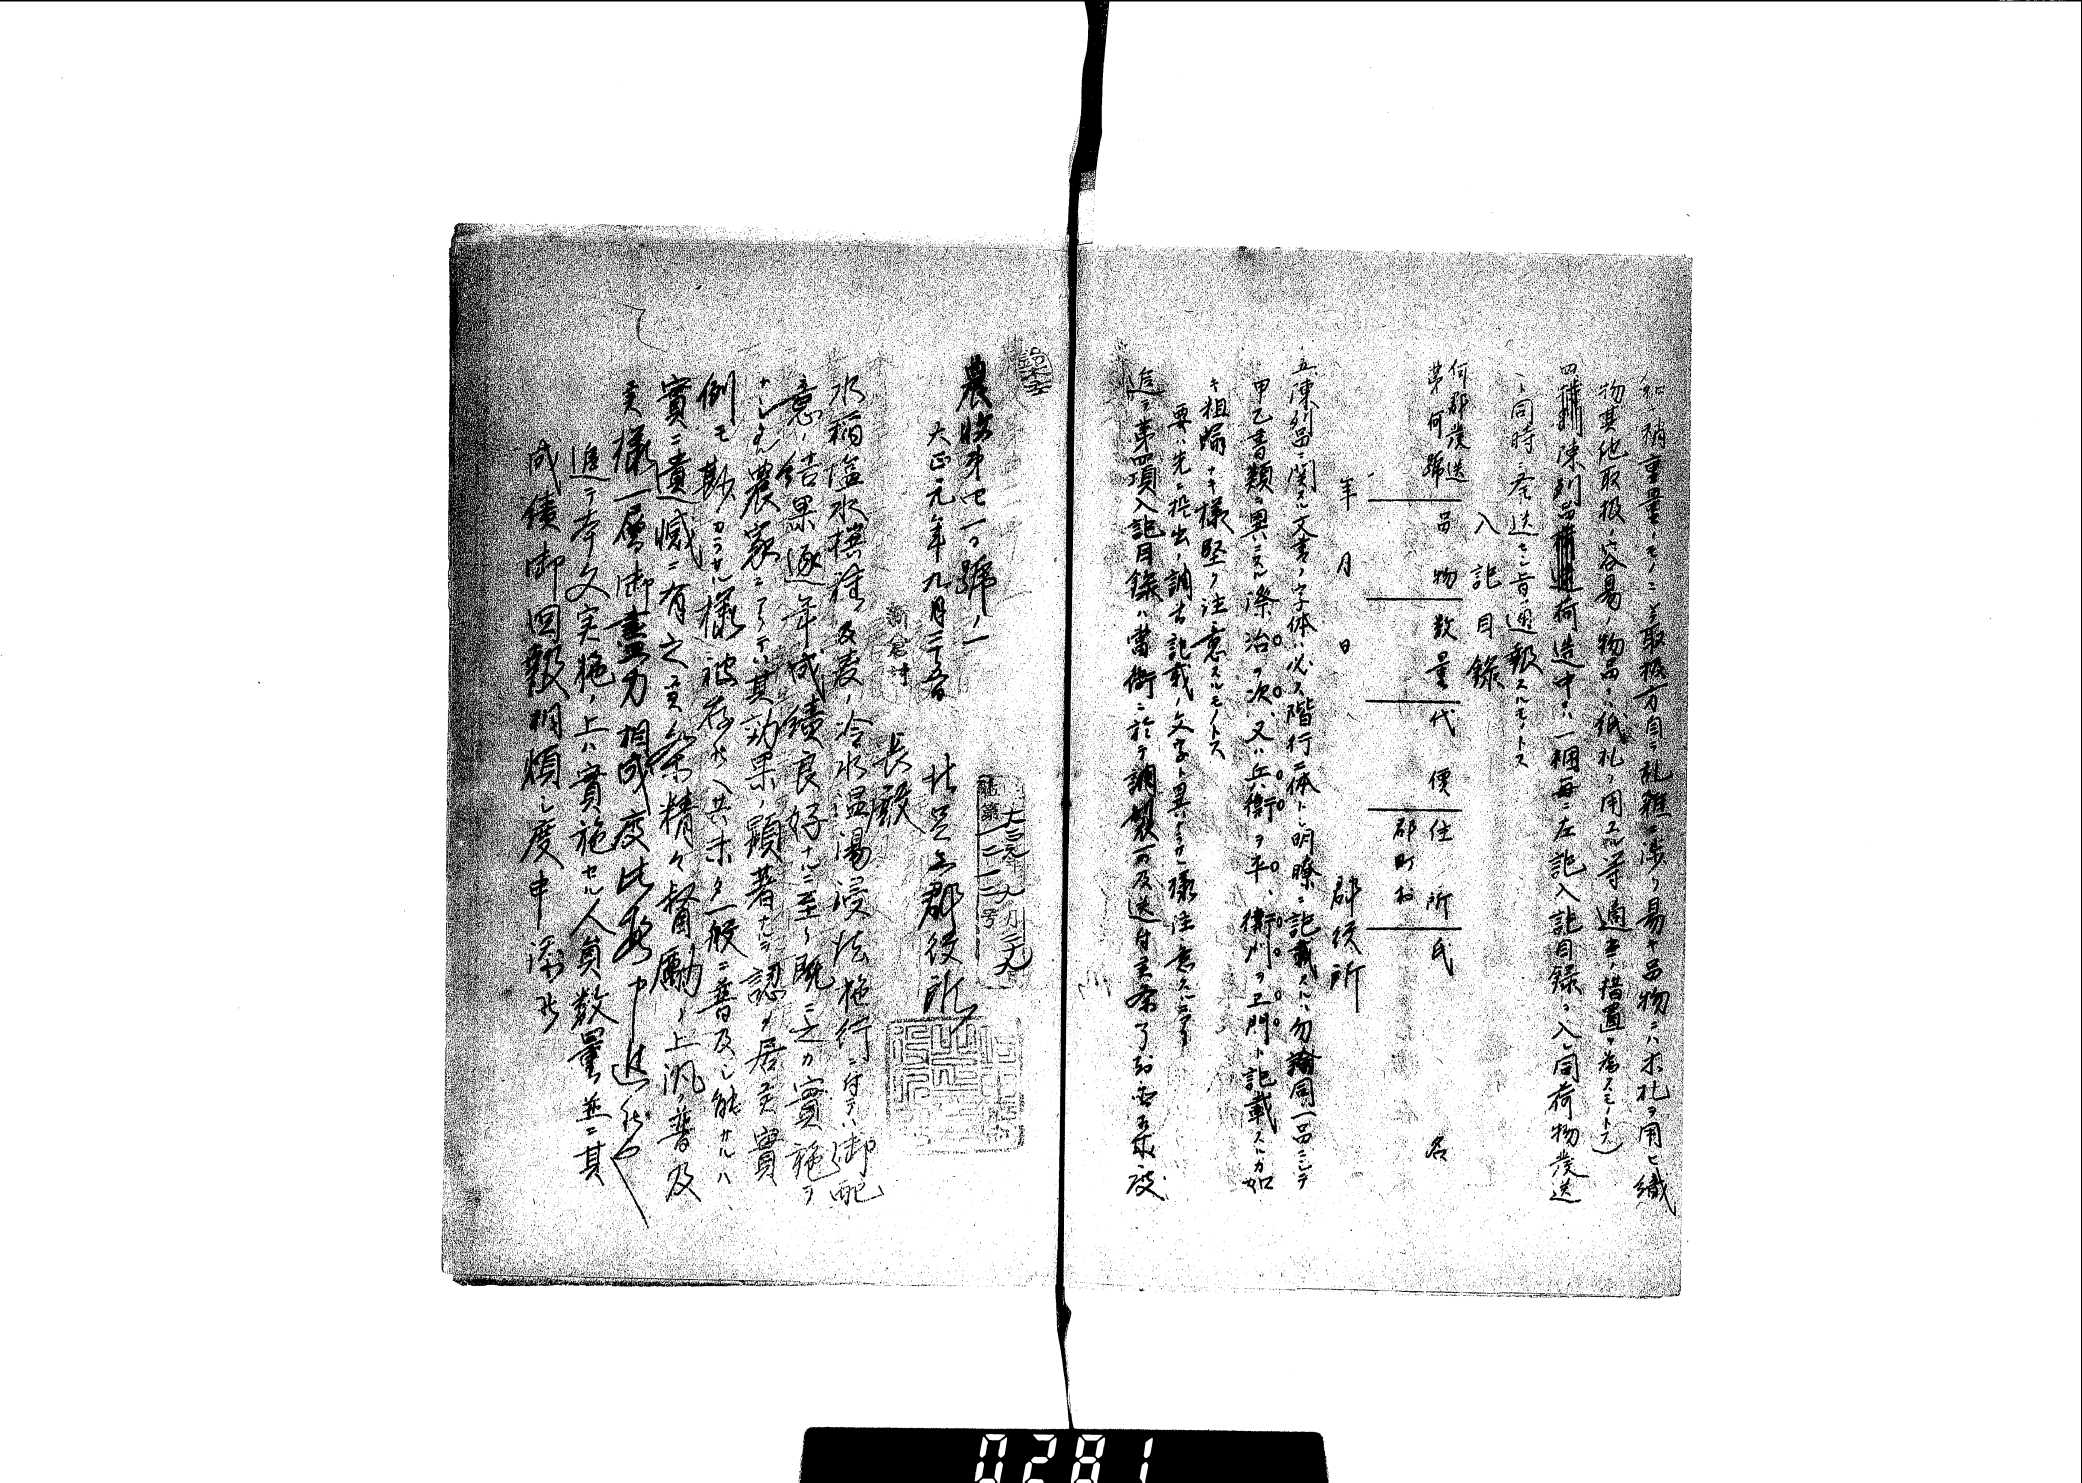 和稍重量ノモノニシテ取扱方自ラ乱雑ニ渉リ易キ品物ニハ木札ヲ用ヒ織
物其他取扱ノ容易ノ物品ハ紙札ヲ用ユル等適宜ノ措置ヲ為スモノトス)
四 陳列品荷造中ニハ一梱毎ニ左記入記目録ヲ入レ同荷物発送
ト同時ニ発送セシ旨通報スルモノトス
入記目録
何郡発送
第何號
品物
数量
代價
住所
郡町村
氏名
年月日
郡役所
五 陳列品ニ関スル文書ノ字体ハ必ス階行二体トシ明瞭ニ記載スルハ勿論同一品ニシテ
甲乙書類ヲ異ニスル際治ヲ次、又ハ兵衛ヲ平、衛門ヲヱ門ト記載スルカ如
キ粗漏ナキ様堅ク注意スルモノトス
要ハ先ニ提出ノ調書記載ノ文字ト異ナラサル様注意スルニアリ
追テ第四項入記目録ハ當衙ニ於テ調製可及送付候条了知

農收第七一〇號ノ一
大正元年九月二十五日
北足立郡役所
新倉村
長殿
號第一二一二号
大正元年九月二九
水稲塩水撰種及麦ノ冷水温湯浸法施行ニ付テハ御配
意ノ結果逐年成績良好ナルニ至リ既ニ之カ實施ヲ
ナシタル農家ニアリテハ其効果ノ顕著ナルヲ認メ居候實
例モ尠カラサル様被存候ヘ共未タ一般ニ普及シ能ハサルハ
實ニ遺憾ニ有之候条精々督励ノ上汎ク普及
候様一層御盡力相成度此段申進候也
追テ本文実施ノ上ハ實施セル人員数量並ニ其
成績御回報相煩シ度申添候
0281